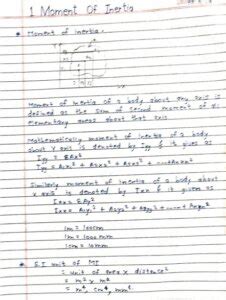 1 Moment Of Inertia
* Moment of inertia:
Moment of inertia of a body about any axis is
defined as the sum of second moment of all
elementary areas about that axis
Mathematically moment of inertia of a body
about Y axis is denoted by Iyy & it given as
Iyy = ΣAx²
Iyy = A₁x₁² + A₂x₂² + A₃x₃² + ....+Anxn²
Similarly moment of inertia of a body about
X axis is denoted by Ixx & it given as
Ixx = ΣAy²
1m = 100cm
1m = 1000mm
1cm = 10mm
* S.I unit of MI
= unit of area x distance²
= m² x m²
= m⁴, cm⁴, mm⁴